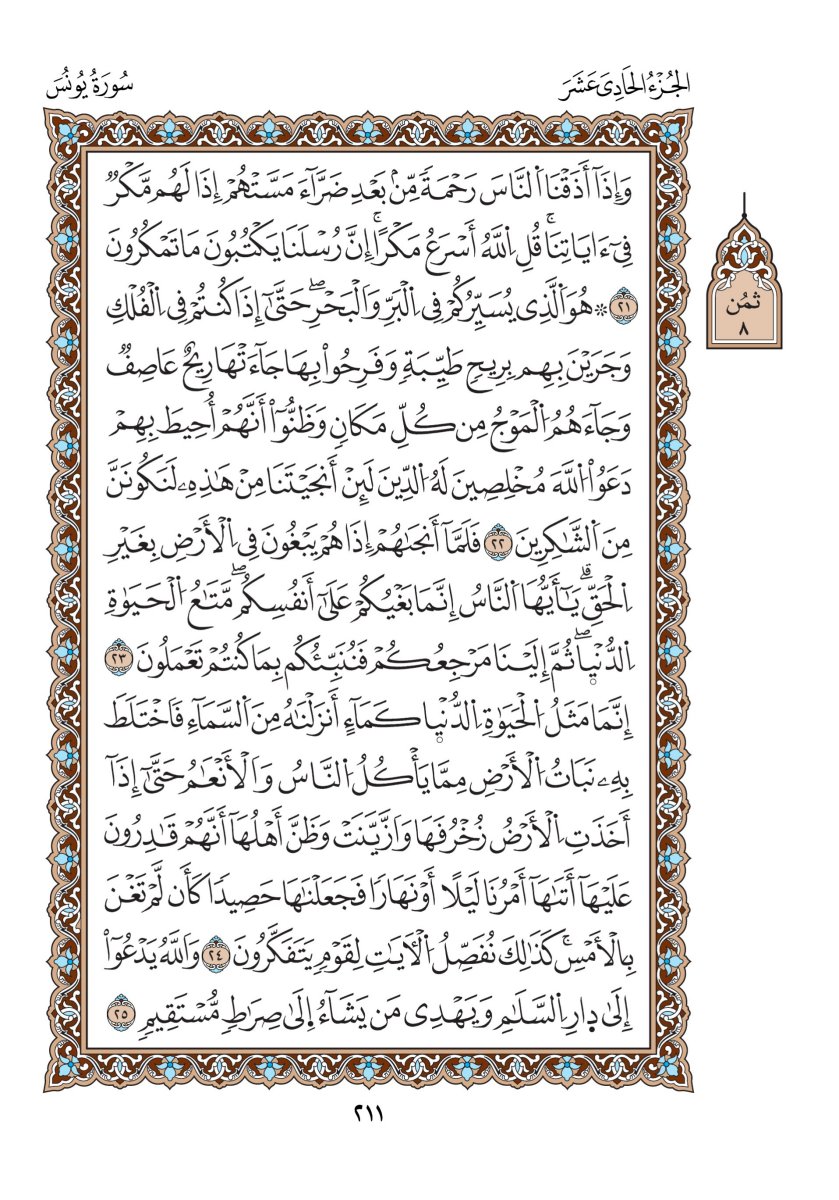 الجُزْءُ الحَادِى عَشَرَ
سُورَةُ يُونُسَ
وَإِذَآ أَذَقْنَا اَ۬لنَّاسَ رَحْمَةً مِّنۢ بَعْدِ ضَرَّآءَ مَسَّتْهُمْ إِذَا لَهُم مَّكْرٌ
فِىٓ ءَايَاتِنَاۚ قُلِ اِ۬للَّهُ أَسْرَعُ مَكْرًاۚ إِنَّ رُسْلَنَا يَكْتُبُونَ مَا تَمْكُرُونَ
٢١ ۞ هُوَ اَ۬لَّذِى يُسَيِّرُكُمْ فِى اِ۬لْبَرِّ وَالْبَحْرِۖ حَتَّىٰٓ إِذَا كُنتُمْ فِى اِ۬لْفُلْكِ
وَجَرَيْنَ بِهِم بِرِيحٍ طَيِّبَةٍ وَفَرِحُواْ بِهَا جَآءَتْهَا رِيحٌ عَاصِفٌ
وَجَآءَهُمُ اُ۬لْمَوْجُ مِن كُلِّ مَكَانٍ وَظَنُّوٓاْ أَنَّهُمْ أُحِيطَ بِهِمْ
دَعَوُاْ اُ۬للَّهَ مُخْلِصِينَ لَهُ اُ۬لدِّينَ لَئِنْ أَنجَيْتَنَا مِنْ هَٰذِهِۦ لَنَكُونَنَّ
مِنَ اَ۬لشَّٰكِرِينَ ٢٢ فَلَمَّآ أَنجَىٰهُمْ إِذَا هُمْ يَبْغُونَ فِى اِ۬لْأَرْضِ بِغَيْرِ
اِ۬لْحَقِّۗ يَٰٓأَيُّهَا اَ۬لنَّاسُ إِنَّمَا بَغْيُكُمْ عَلَىٰٓ أَنفُسِكُمۖ مَّتَٰعُ اُ۬لْحَيَوٰةِ
اِ۬لدُّنْيٜاۖ ثُمَّ إِلَيْنَا مَرْجِعُكُمْ فَنُنَبِّئُكُم بِمَا كُنتُمْ تَعْمَلُونَ ٢٣
إِنَّمَا مَثَلُ اُ۬لْحَيَوٰةِ اِ۬لدُّنْيٜا كَمَآءٍ أَنزَلْنَٰهُ مِنَ اَ۬لسَّمَآءِ فَاخْتَلَطَ
بِهِۦ نَبَاتُ اُ۬لْأَرْضِ مِمَّا يَأْكُلُ اُ۬لنَّاسُ وَالْأَنْعَٰمُ حَتَّىٰٓ إِذَآ
أَخَذَتِ اِ۬لْأَرْضُ زُخْرُفَهَا وَازَّيَّنَتْ وَظَنَّ أَهْلُهَآ أَنَّهُمْ قَٰدِرُونَ
عَلَيْهَآ أَتَىٰهَآ أَمْرُنَا لَيْلًا أَوْ نَهَارًا فَجَعَلْنَٰهَا حَصِيدًا كَأَن لَّمْ تَغْنَ
بِالْأَمْسِۚ كَذَٰلِكَ نُفَصِّلُ اُ۬لْأٓيَٰتِ لِقَوْمٍ يَتَفَكَّرُونَ ٢٤ وَاللَّهُ يَدْعُوٓاْ
إِلَىٰ دٜارِ اِ۬لسَّلَٰمِ وَيَهْدِى مَن يَشَآءُ اِ۪لَىٰ صِرَٰطٍ مُّسْتَقِيمٍ ٢٥
ثمُن
٨
٢١١